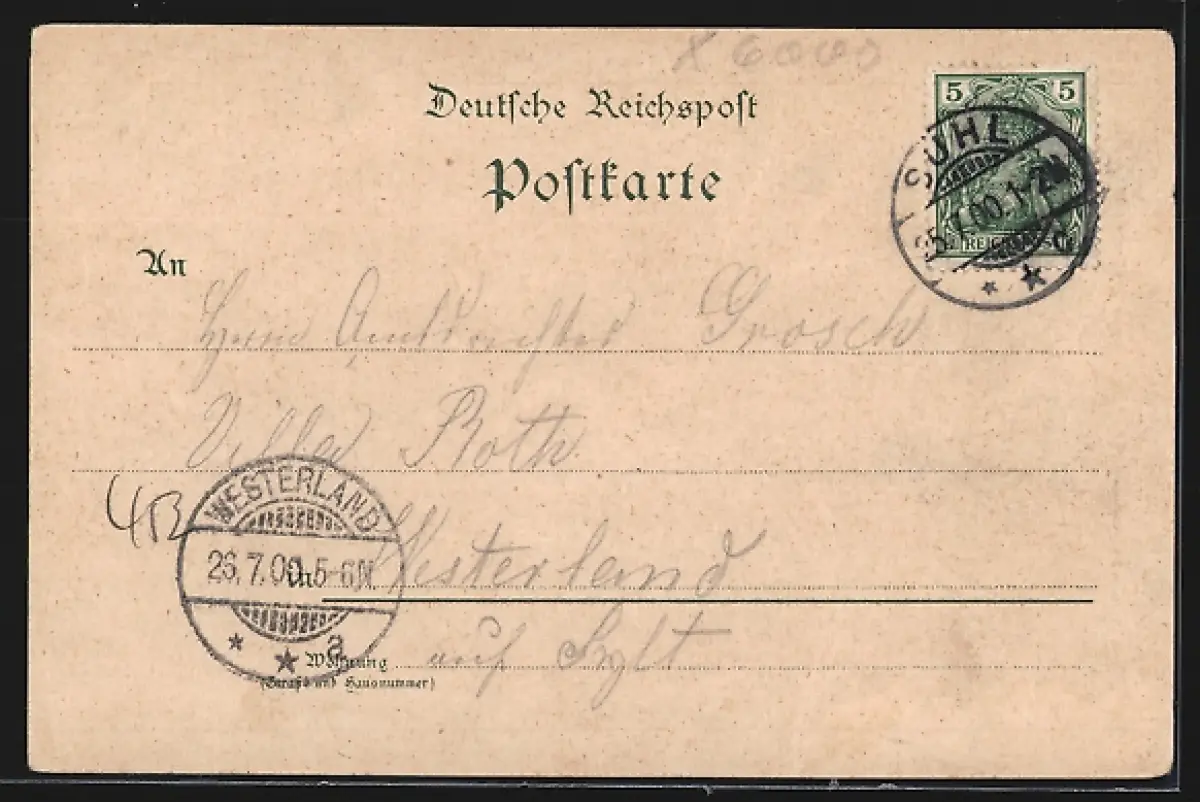 X 6000
Deutsche Reichspost
Postkarte
5 5
SUHL
25.7.00.1-2N
REICHSPOST
An
Herrn Amtsrichter Grosch
Villa Roth
4B
WESTERLAND
26.7.00.5-6N
a
in Westerland
Wohnung auf Sylt
(Straße und Hausnummer)